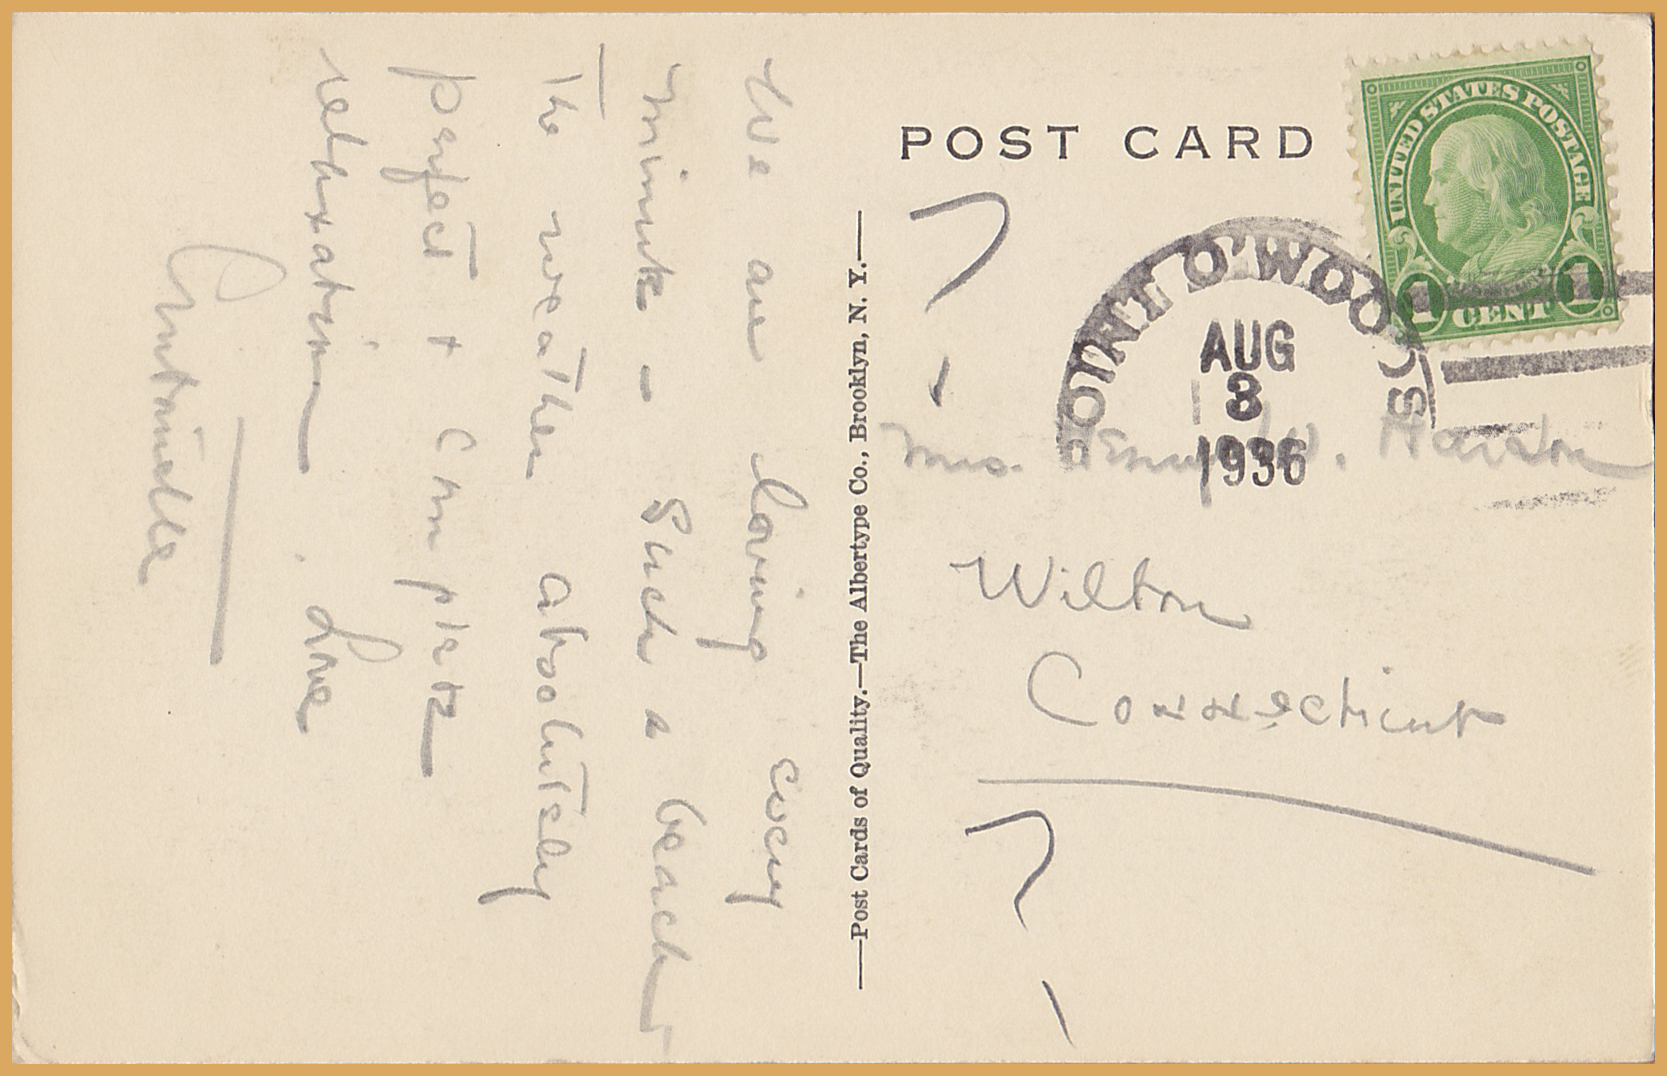 We are loving every
minute - Such a beach
The weather absolutely
perfect & complete
relaxation. Love
Antoinette
—Post Cards of Quality.—The Albertype Co., Brooklyn, N. Y.—
POST CARD
UNITED STATES POSTAGE
1 CENT 1
POINT O'WOODS
AUG
3
1936
Mrs. Henry W.
Wilton
Connecticut
?
?